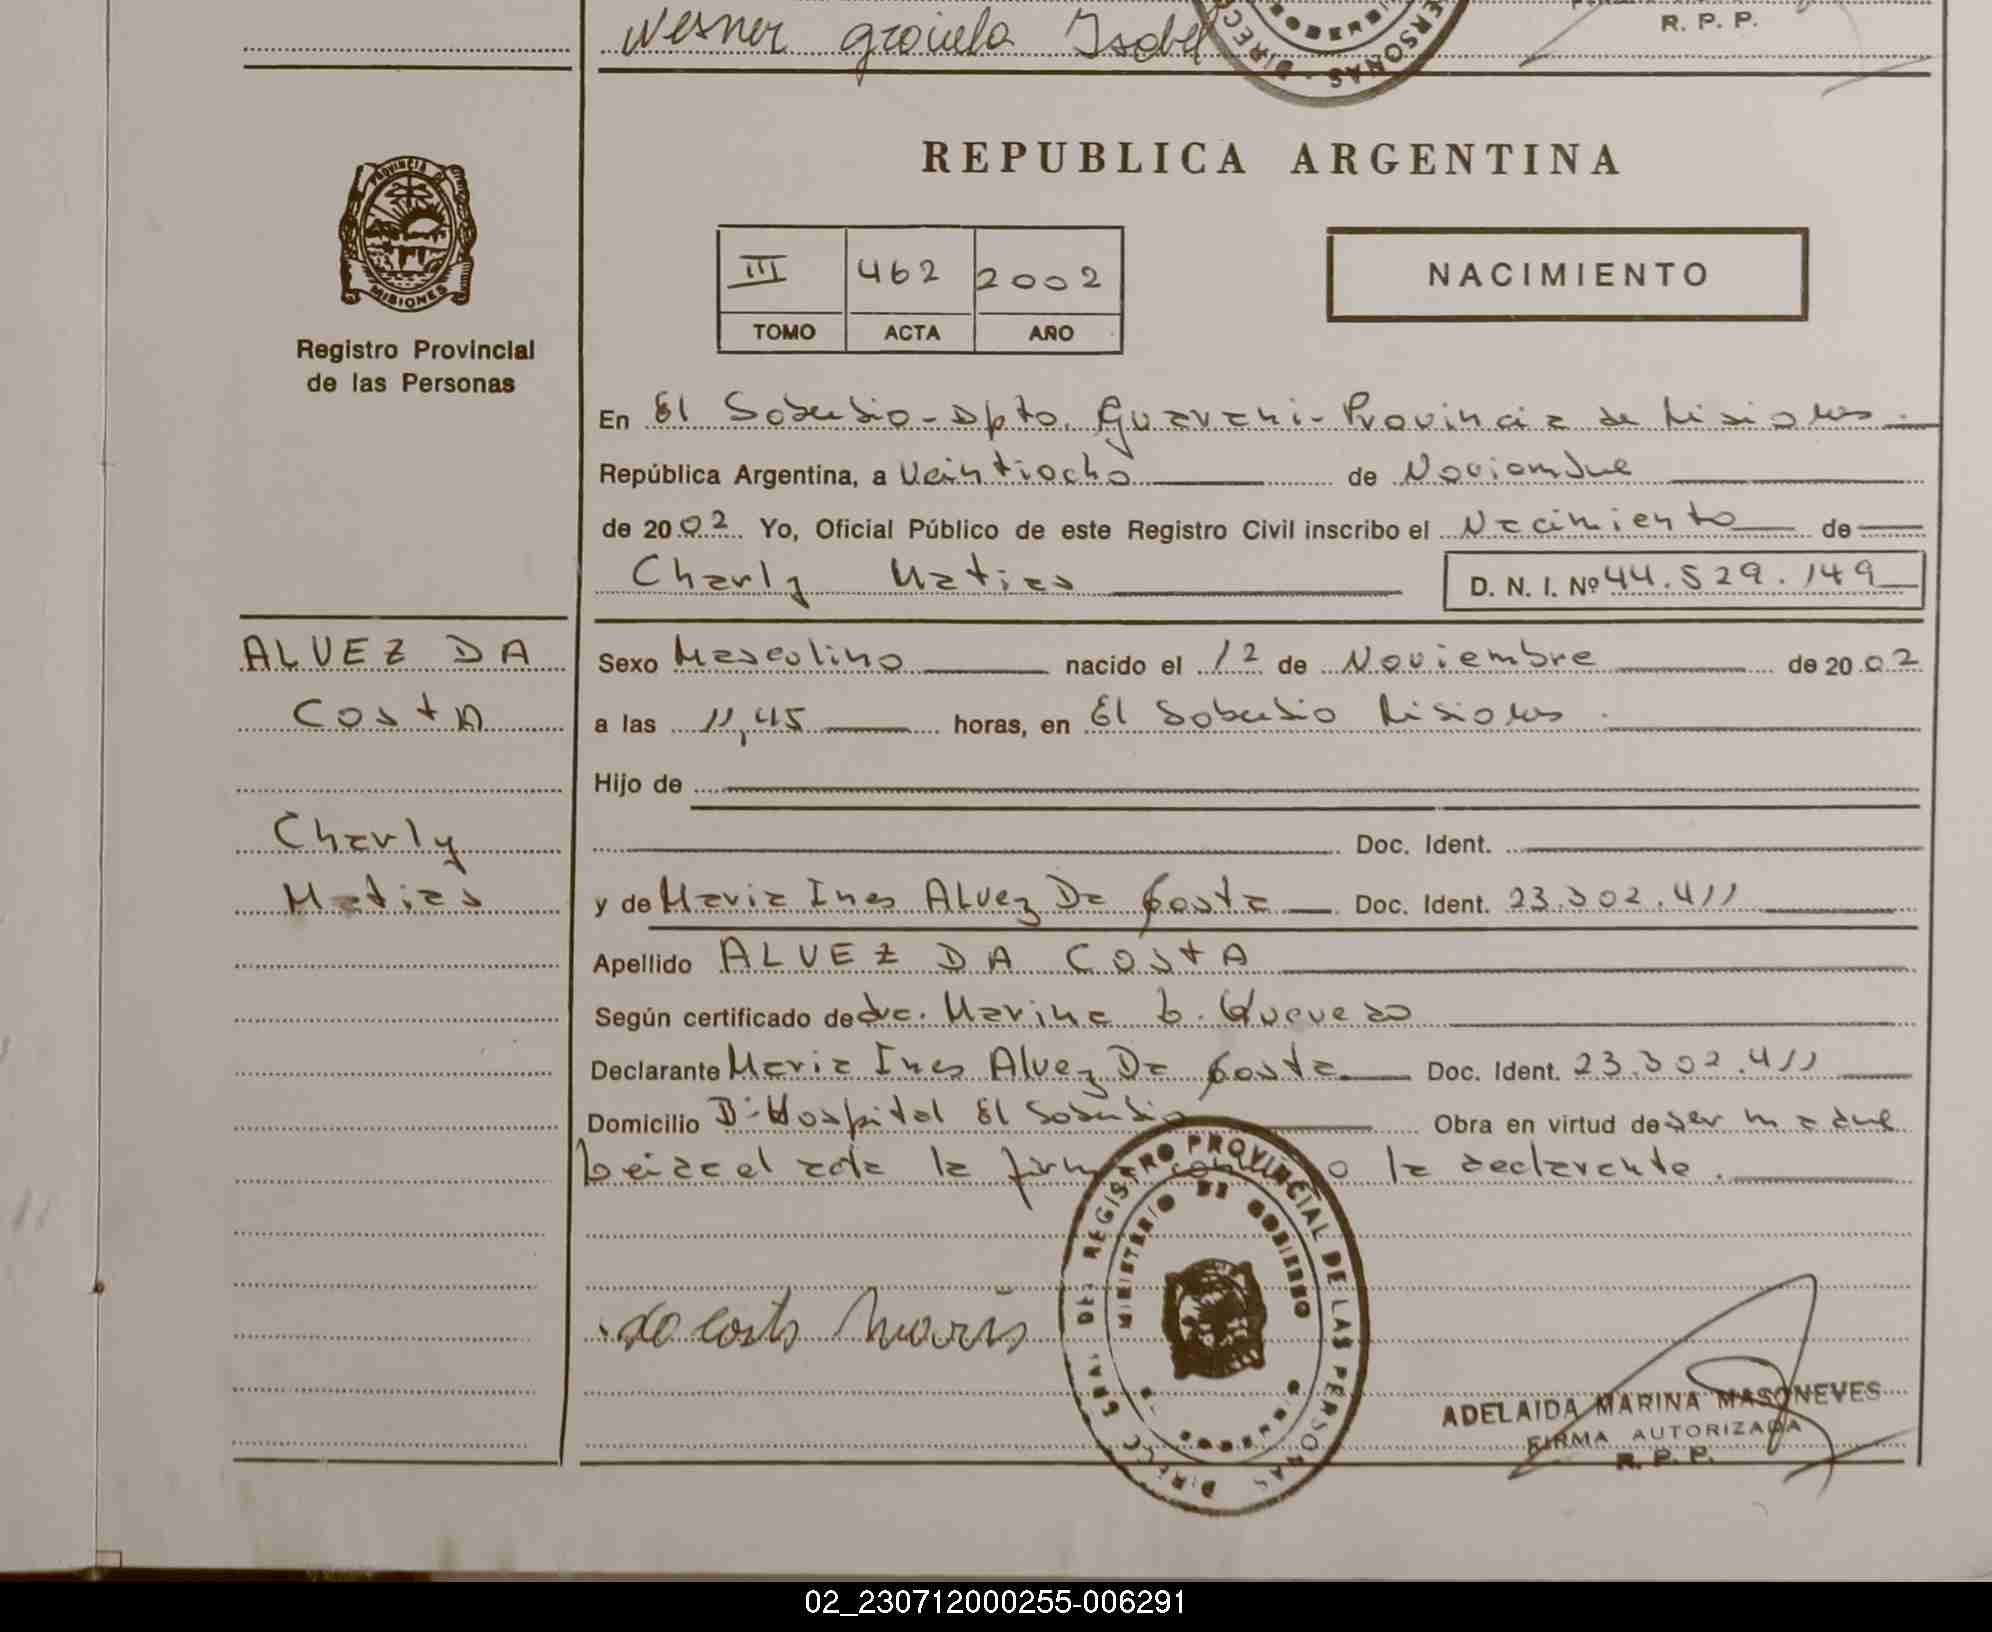 Wesner Graciela Isabel
R. P. P.
REPUBLICA ARGENTINA
PROVINCIA DE MISIONES
Registro Provincial
de las Personas
III 462 2002
TOMO ACTA AÑO
NACIMIENTO
En El Soberbio - Dpto. Guarani - Provincia de Misiones.
República Argentina, a Veintiocho de Noviembre
de 2002 Yo, Oficial Público de este Registro Civil inscribo el Nacimiento de
Charly Matias D. N. I. Nº 44.529.149
ALVEZ DA
COSTA
Charly
Matias
Sexo Masculino nacido el 12 de Noviembre de 2002
a las 11,45 horas, en El Soberbio Misiones.
Hijo de
Doc. Ident.
y de Maria Ines Alvez Da Costa Doc. Ident. 23.302.411
Apellido ALVEZ DA COSTA
Según certificado de dra. Marina Quevedo
Declarante Maria Ines Alvez Da Costa Doc. Ident. 23.302.411
Domicilio Bº Hospital El Soberbio Obra en virtud de ser madre
Leida el acta la firma la declarante.
da Costa Maria
DIRECC. GRAL. DEL REGISTRO PROVINCIAL DE LAS PERSONAS
MINISTERIO DE GOBIERNO
MISIONES
ADELAIDA MARINA MASONEVES
FIRMA AUTORIZADA
R. P. P.
02_230712000255-006291